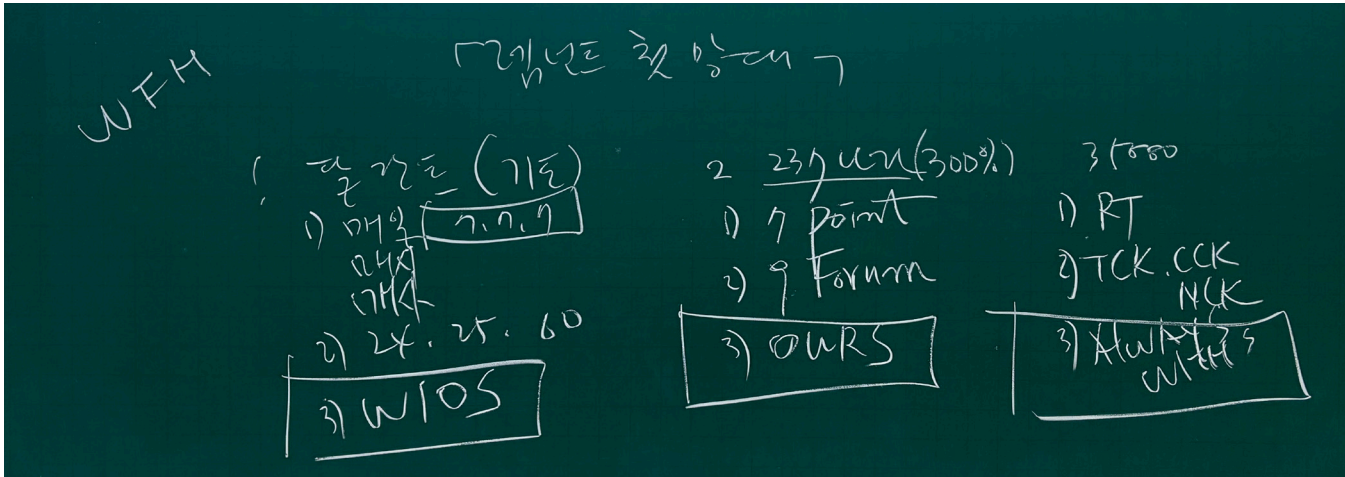 WFH
「렘넌트 첫 망대」
1 (기도)
1) 매일 7.7.7
매
매
2) 24.25.60
3) WIOS
2 237 (300%)
1) 7 Point
2) 9 Forum
3) OURS
3 5000
1) RT
2) TCK.CCK
NCK
3) ALWAYS
WITH